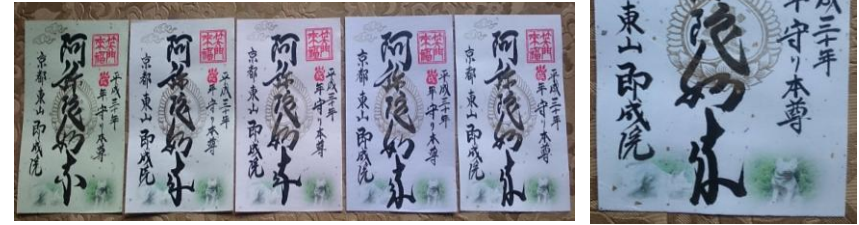 笑門来福
平成三十年
年守り本尊
阿弥陀如来
京都・東山 即成院
笑門来福
平成三十年
年守り本尊
阿弥陀如来
京都・東山 即成院
笑門来福
平成三十年
年守り本尊
阿弥陀如来
京都・東山 即成院
笑門来福
平成三十年
年守り本尊
阿弥陀如来
京都・東山 即成院
笑門来福
平成三十年
年守り本尊
阿弥陀如来
京都・東山 即成院
成三十年
年守り本尊
陀如来
東山 即成院